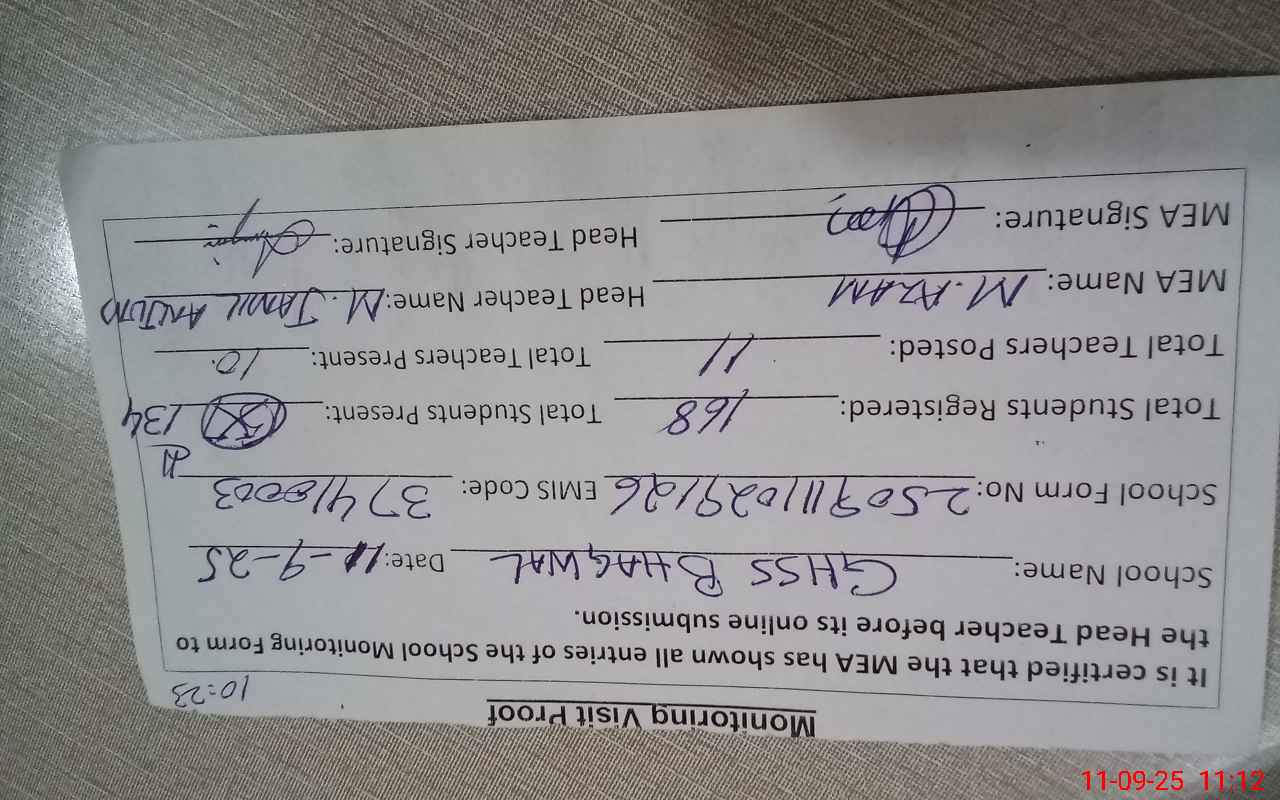 Monitoring Visit Proof
10:23
It is certified that the MEA has shown all entries of the School Monitoring Form to
the Head Teacher before its online submission.
School Name: GHSS BHAGWAL Date: 11-9-25
School Form No: 2509111029126 EMIS Code: 37410003
Total Students Registered: 168 Total Students Present: 134
Total Teachers Posted: 11 Total Teachers Present: 10.
MEA Name: M. AZAM Head Teacher Name: M. JAMIL ANJUM
MEA Signature: Head Teacher Signature:
11-09-25 11:12